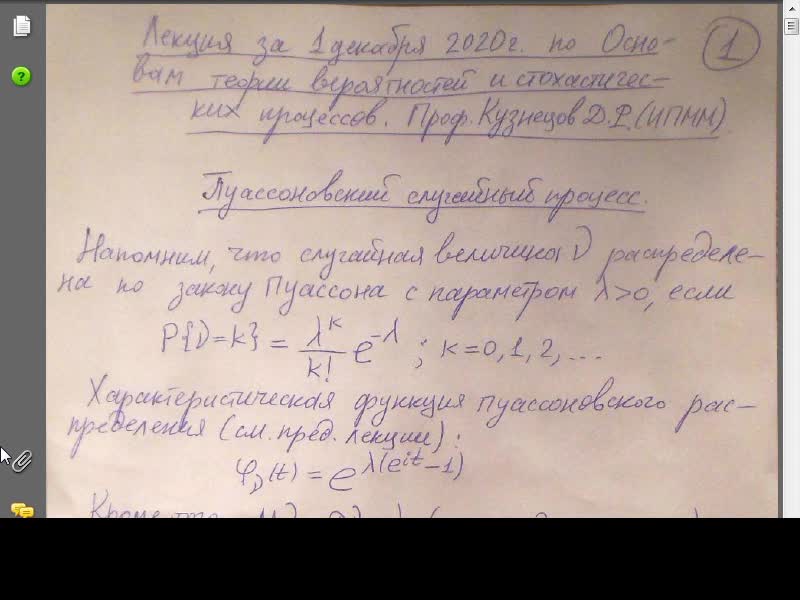 Лекция за 1 декабря 2020г. по Осно-
вам теории вероятностей и стохастичес-
ких процессов. Проф. Кузнецов Д.Ф. (ИПММ)
1
Пуассоновский случайный процесс.
Напомним, что случайная величина ν распределе-
на по закону Пуассона с параметром λ>0, если
P{ν=k} = λ^k/k! e^{-λ} ; k=0,1,2,...
Характеристическая функция пуассоновского рас-
пределения (см. пред. лекции):
φ_ν(t) = e^{λ(e^{it}-1)}